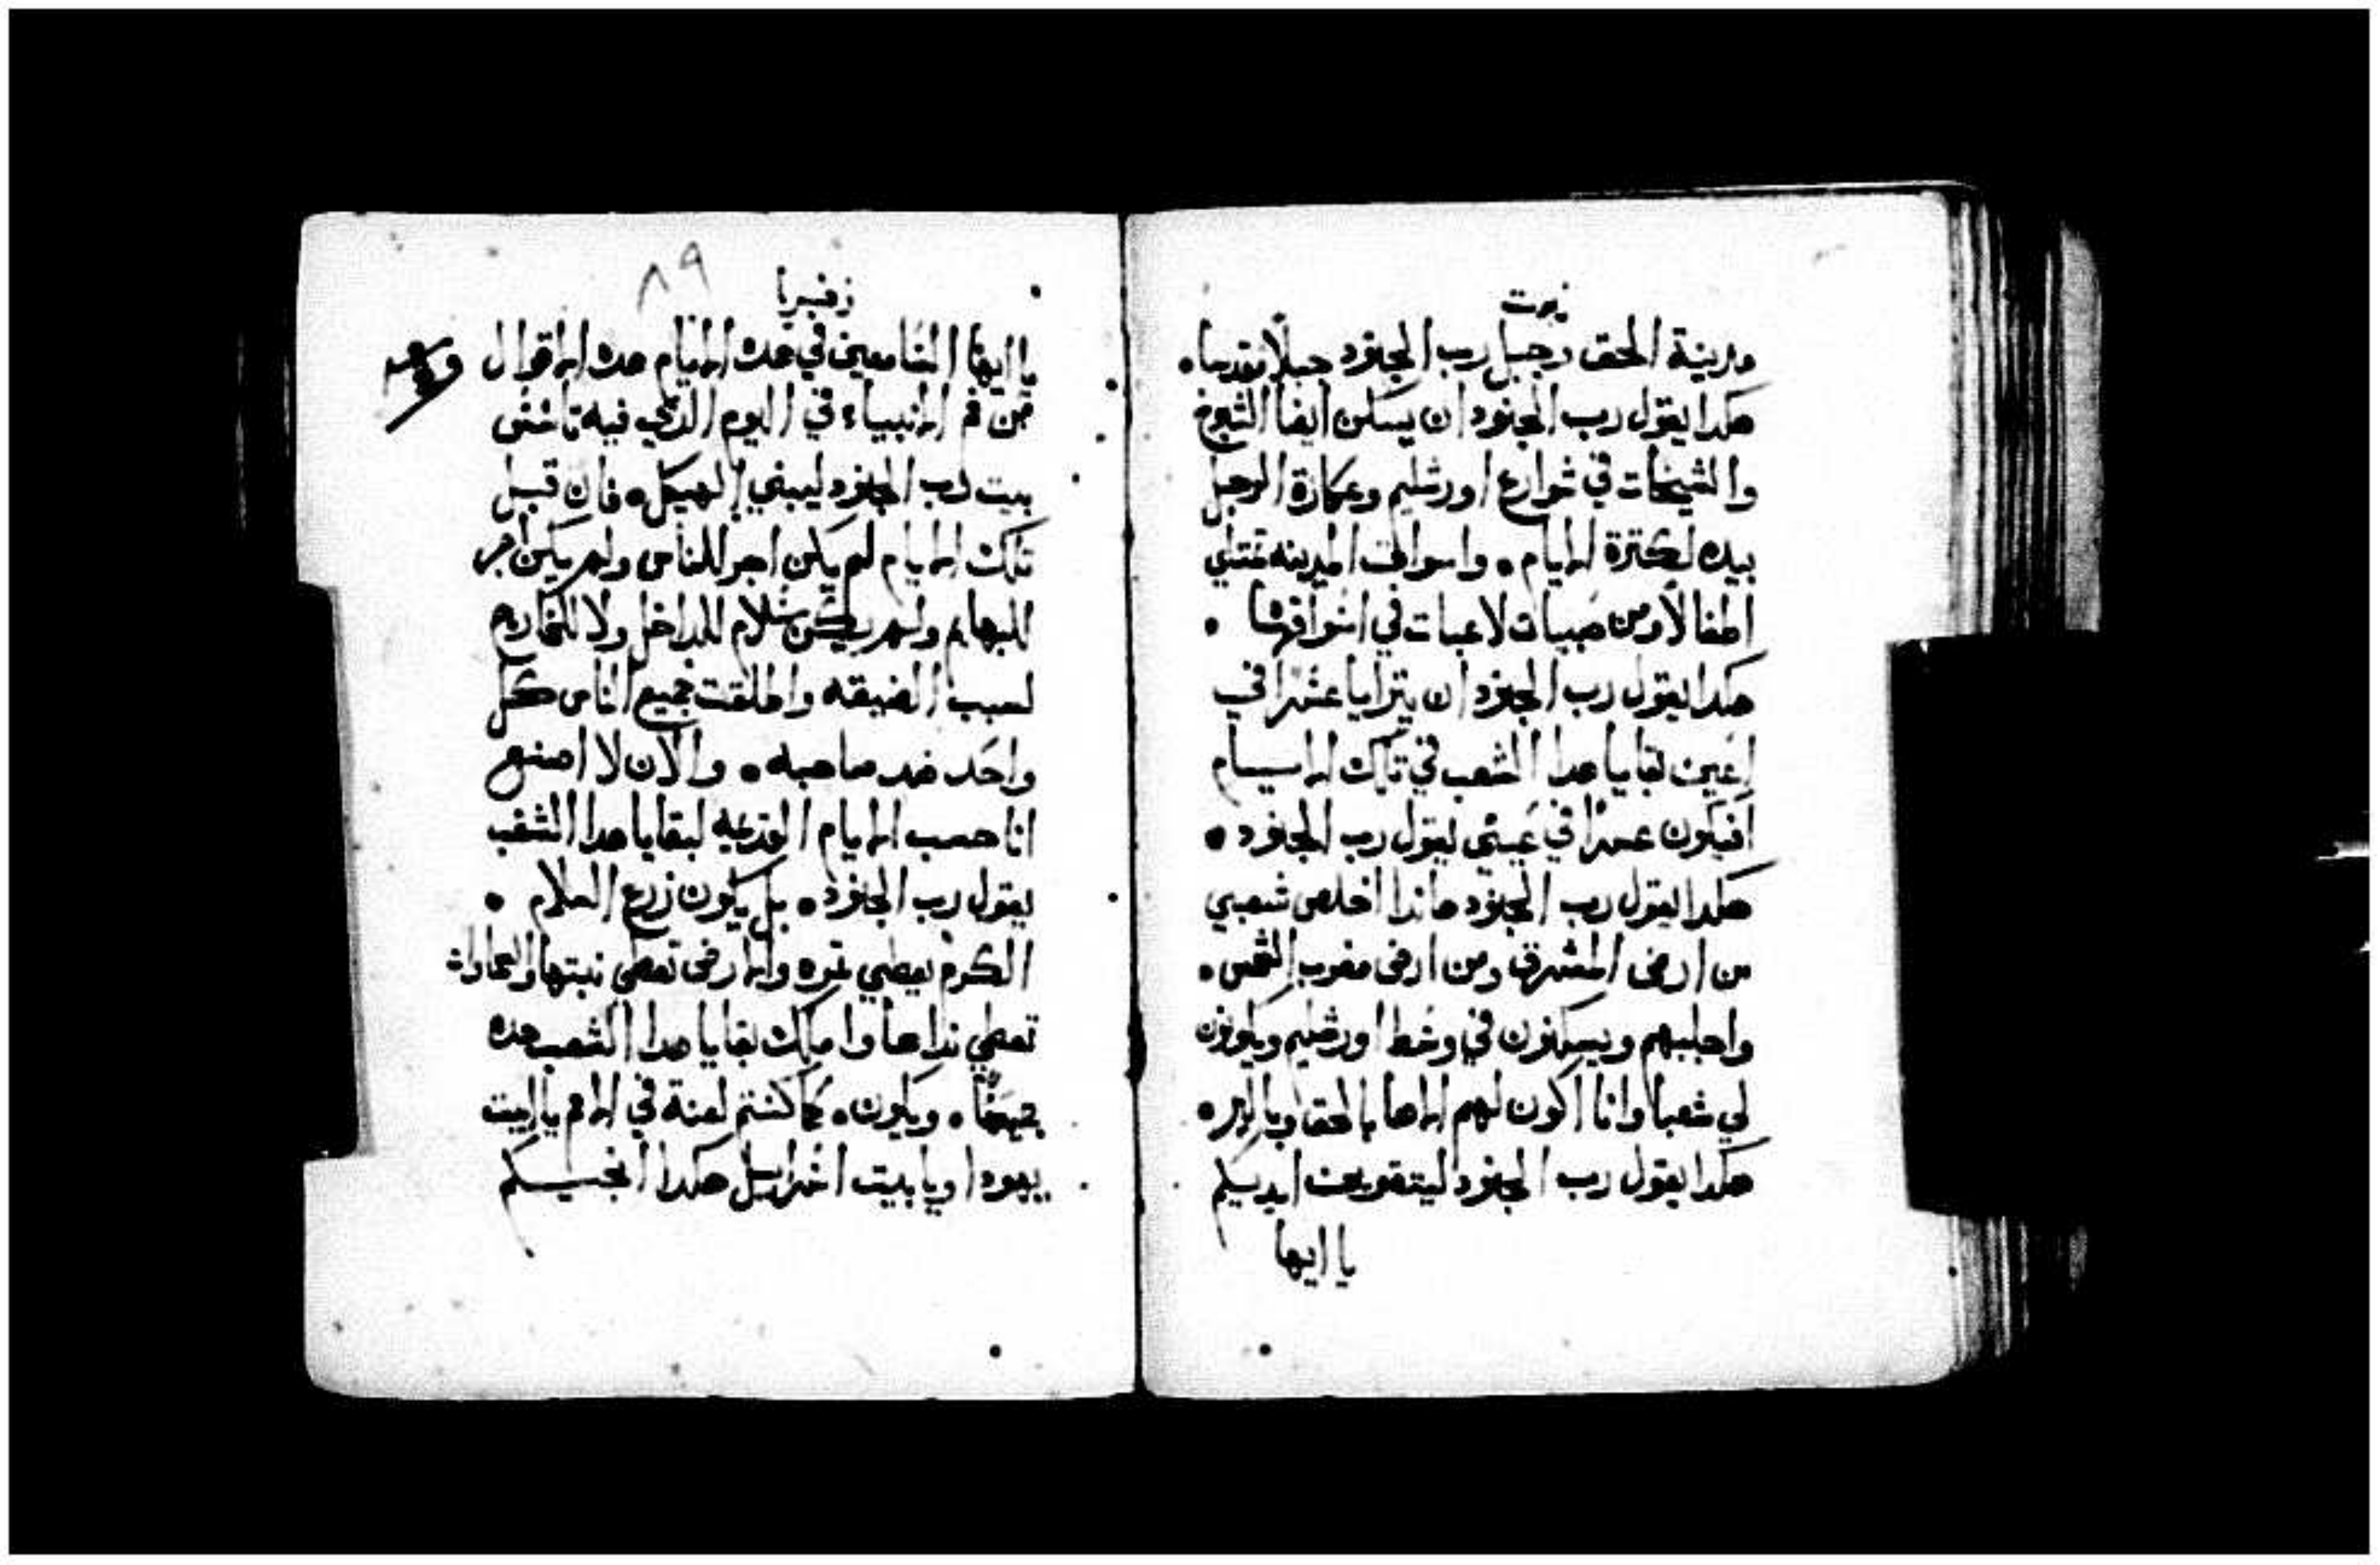 نبوت
مدينة الحق وجبل رب الجنود جبلاً مقدسا.
هكدا يقول رب الجنود ان يسكن ايضا الشيوخ
والشيخات في شوارع اورشليم وعكازة الرجل
بيده لكترة الايام. واسواق المدينه تمتلي
اطفالا ومن صبيات لاعبات في اسواقها .
هكدا يقول رب الجنود ان يترايا عسرا في
اعين بقايا هدا الشعب في تلك الايام
افيكون عسرا في عيني يقول رب الجنود.
هكدا يقول رب الجنود هاندا اخلص شعبي
من ارض المشرق ومن ارض مغرب الشمس.
واجلبهم ويسكنون في وسط اورشليم ويكونون
لي شعبا وانا اكون لهم الاها بالحق وبالبر.
هكدا يقول رب الجنود ليتقوى ايديكم
يا ايها
زخريا ٨٩
يا ايها السامعين في هده الايام هده الاقوال
من فم الانبياء في اليوم الدي فيه تاسس
بيت رب الجنود ليبني الهيكل. فان قبل
تلك الايام لم يكن اجر للناس ولم يكن اجر
للبهايم ولم يكن سلام للداخل ولا للخارج
لسبب الضيقه واطلقت جميع الناس كل
واحد ضد صاحبه. والان لا اصنع
انا حسب الايام القديمه لبقايا هدا الشعب
يقول رب الجنود. بل يكون زرع السلام .
الكرم يعطي تمره والارض تعطي نبتها والسماوات
تعطي نداها واملك بقايا هدا الشعب هده
جميعها. ويكون. كما كنتم لعنة في الامم يا بيت
يهودا ويا بيت اسراييل هكدا انجيكم